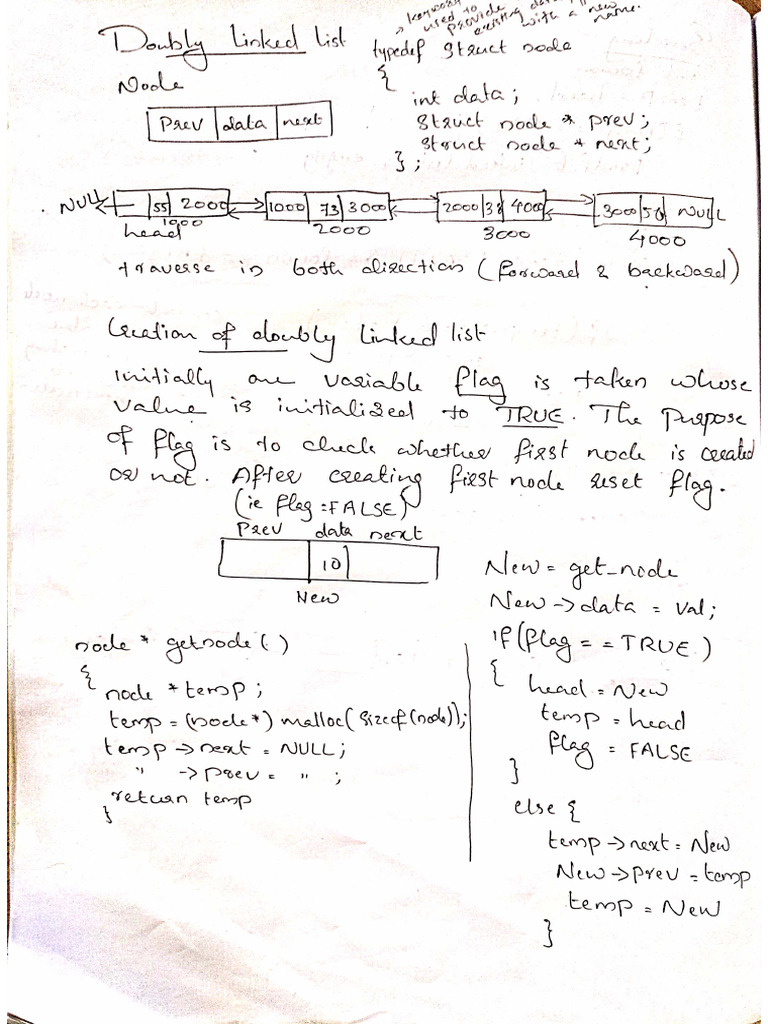 Doubly Linked list
Node
Prev data next
keyword
used to
provide
existing data
with a new
name.
typedef struct node
{
int data;
struct node * prev;
struct node * next;
};
NULL 55 2000 1000 73 3000 2000 38 4000 3000 50 NULL
head 1000 2000 3000 4000
traverse in both direction (forward & backward)
Creation of doubly linked list
initially one variable flag is taken whose
value is initialized to TRUE. The purpose
of flag is to check whether first node is created
or not. After creating first node reset flag.
(ie flag = FALSE)
Prev data next
10
New
node * getnode()
{
node *temp;
temp = (node*) malloc(sizeof(node));
temp -> next = NULL;
" -> prev = " ;
return temp
}
New = get_node
New -> data = val;
if(flag == TRUE)
{
head = New
temp = head
flag = FALSE
}
else {
temp -> next = New
New -> prev = temp
temp = New
}